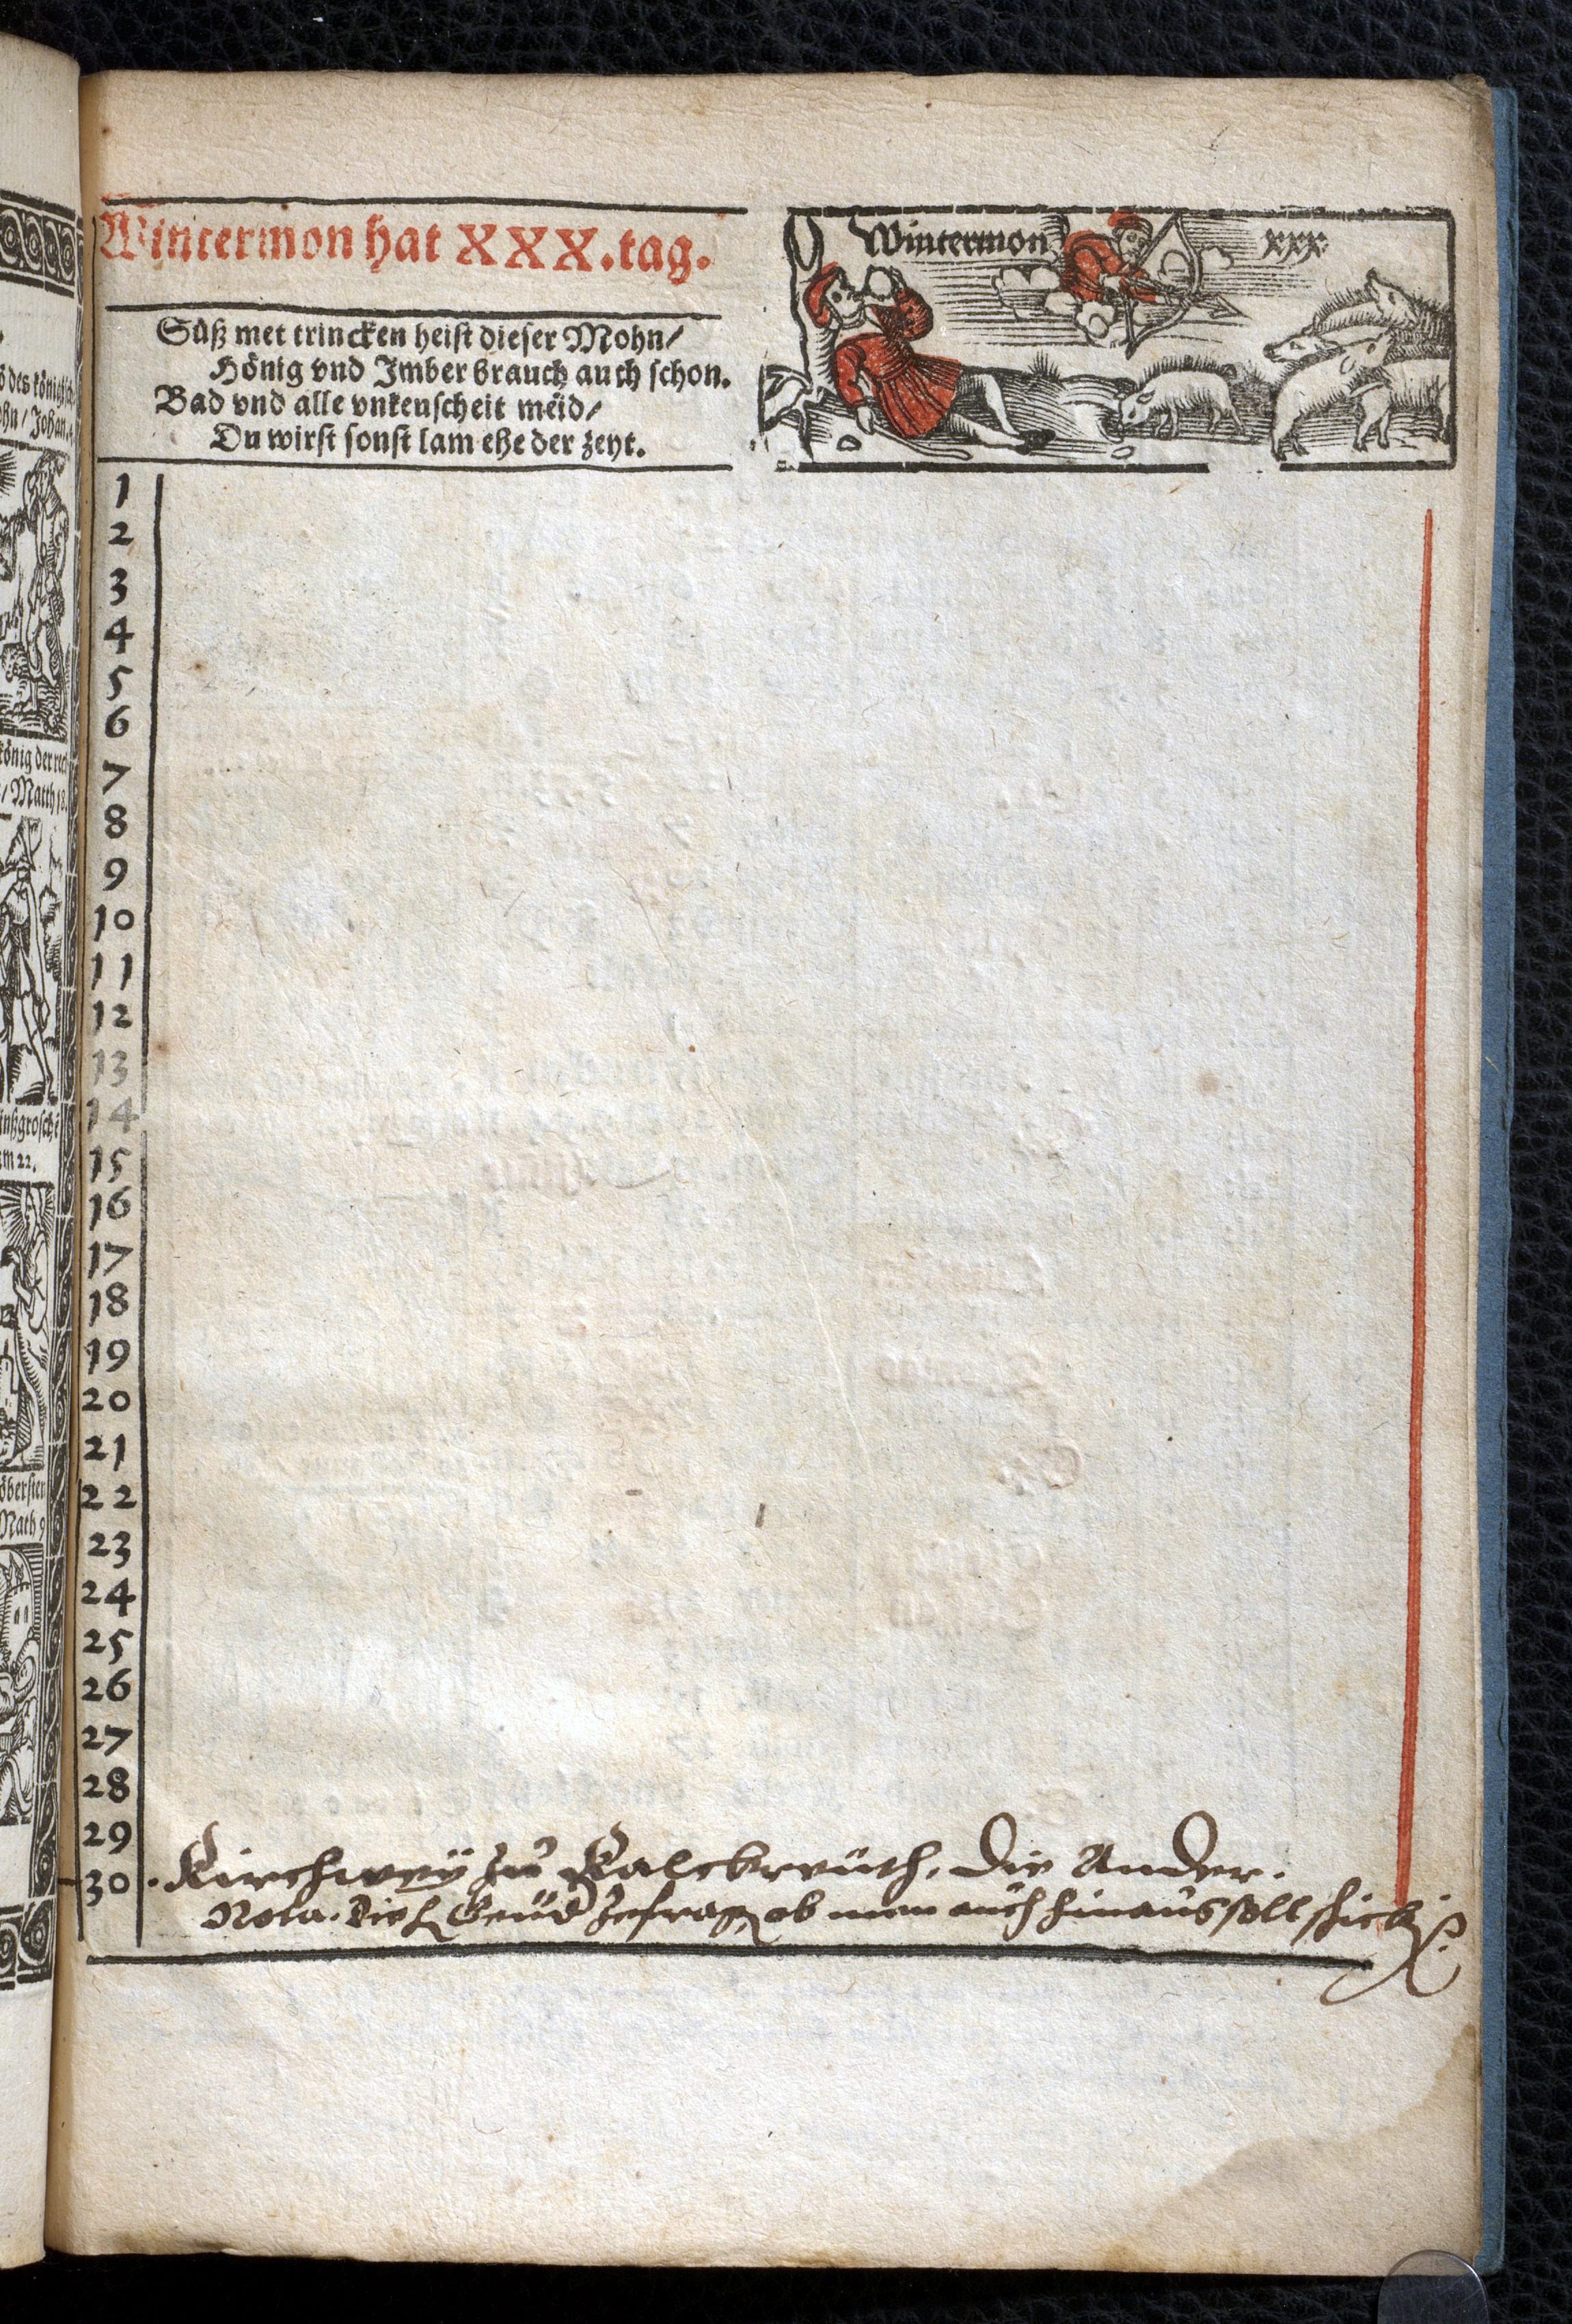 Wintermon hat XXX. tag.
Wintermon xxx
Süß met trincken heist dieser Mohn/
Hönig vnd Imber brauch auch schon.
Bad vnd alle vnkeuscheit meid/
Du wirst sonst lam ehe der zeyt.
1
2
3
4
5
6
7
8
9
10
11
12
13
14
15
16
17
18
19
20
21
22
23
24
25
26
27
28
29
30 . Kirchwey zu Kalckreüth, die Ander.
Nota. die zefragen ob man auch hinaus soll schicken
des königisch
Johan. 4
könig der rech
/ Matth 18.
inßgrosche
22.
öbersten
Math 9